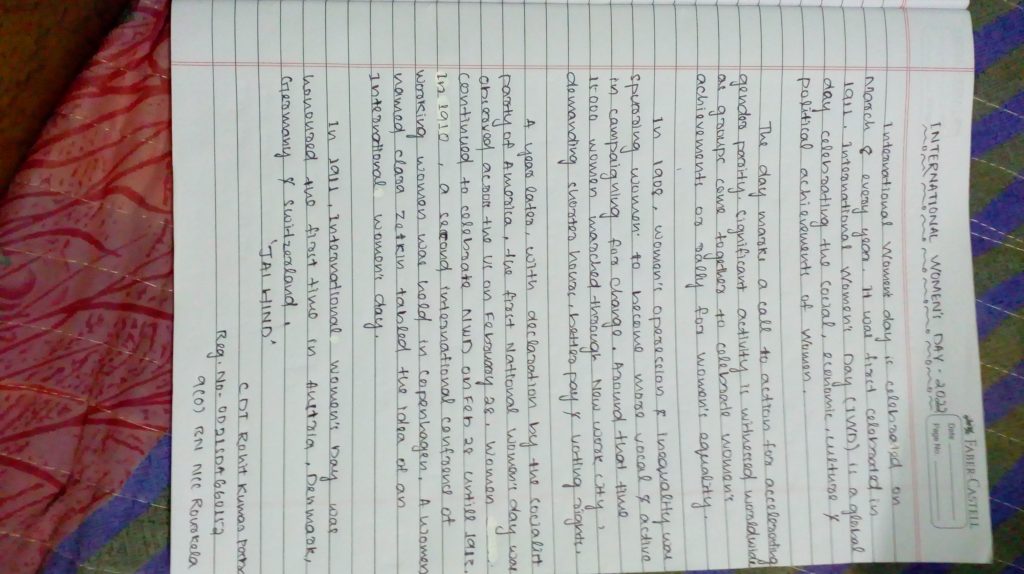 FABER-CASTELL
Date
Page No.
INTERNATIONAL WOMEN'S DAY - 2022
International Women's day is celebrated on
March 8 every year. It was first celebrated in
1911. International Women's Day (IWD) is a global
day celebrating the social, economic, culture &
political achievements of women.
The day marks a call to action for accelerating
gender parity, significant activity is withnced worldwide
as groups come together to celebrate women's
achievements or rally for women's equality.
In 1908, women's operession & Inequality was
spurring women to become more vocal & active
in campaigning for change. Around that time
15000 women marched through New work city,
demanding shorter hours, better pay & voting rights.
A year later, with declaration by the socialist
party of America, the first National women's day was
observed acsor the US on February 28. Women
continued to celebrate NWD on Feb 28 untill 1913.
In 1910, a second international confrence of
working women was held in copenhagen. A women
named clara Zetkin tabled the idea of an
International women's day.
In 1911, International women's Day was
honoured the first time in Austria, Denmark,
Germany & Switzerland.
'JAI HIND'
CDT Rohit Kumar
Reg. No-
9(O) BN NCC Rourkela